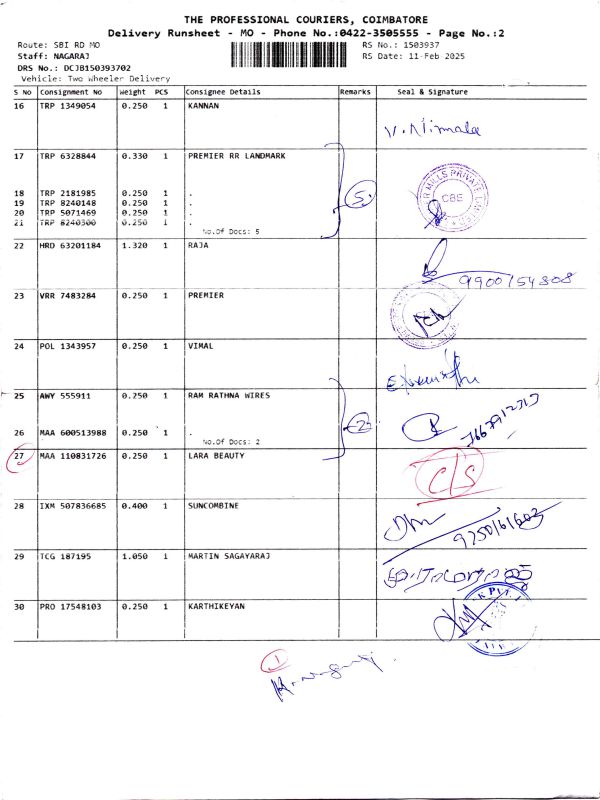 THE PROFESSIONAL COURIERS, COIMBATORE
Delivery Runsheet - MO - Phone No.:0422-3505555 - Page No.:2
Route: SBI RD MO RS No.: 1503937
Staff: NAGARAJ RS Date: 11-Feb-2025
DRS No.: DCJB150393702
Vehicle: Two Wheeler Delivery
S No Consignment No Weight PCS Consignee Details Remarks Seal & Signature
16 TRP 1349054 0.250 1 KANNAN
V. Nirmala
17 TRP 6328844 0.330 1 PREMIER RR LANDMARK
18 TRP 2181985 0.250 1 . 5
19 TRP 8240148 0.250 1 . CBE
20 TRP 5071469 0.250 1 .
21 TRP 8240300 0.250 1 .
No.Of Docs: 5
22 HRD 63201184 1.320 1 RAJA
9900154808
23 VRR 7483284 0.250 1 PREMIER
24 POL 1343957 0.250 1 VIMAL
25 AWY 555911 0.250 1 RAM RATHNA WIRES
2
26 MAA 600513988 0.250 1 .
No.Of Docs: 2
27 MAA 110831726 0.250 1 LARA BEAUTY
C/S
28 IXM 507836685 0.400 1 SUNCOMBINE
29 TCG 187195 1.050 1 MARTIN SAGAYARAJ
30 PRO 17548103 0.250 1 KARTHIKEYAN
1